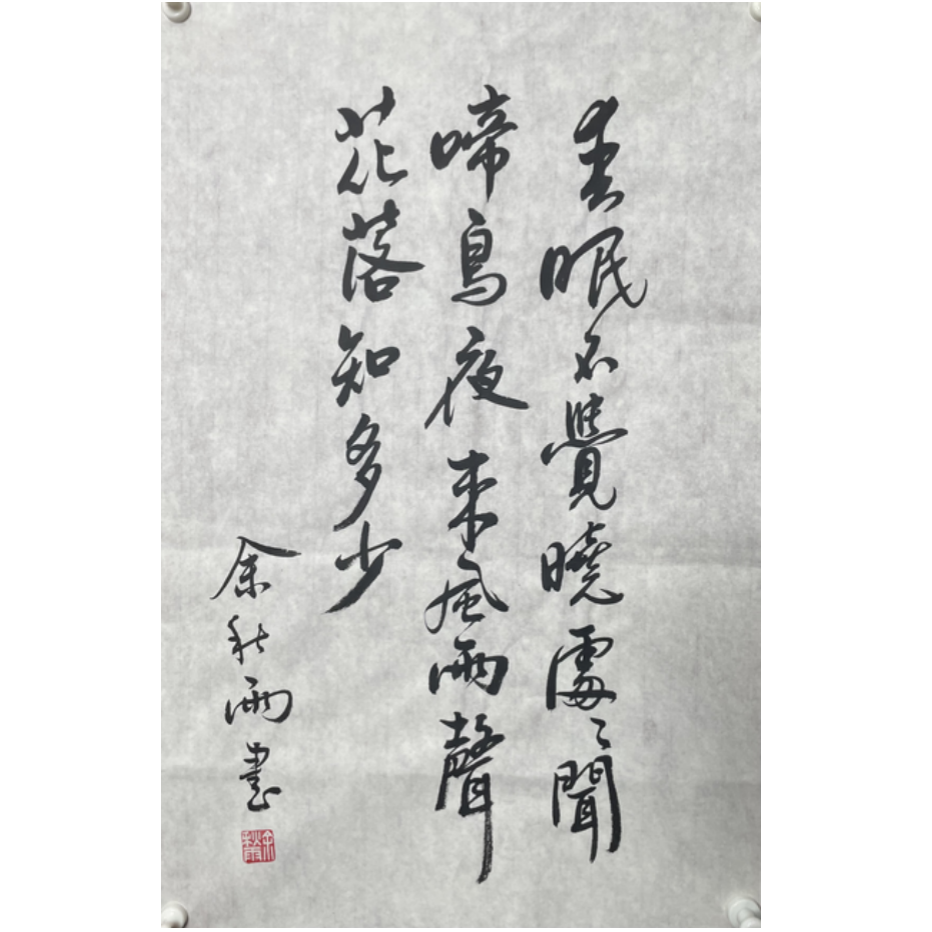 春眠不覺曉處〻聞
啼鳥夜來風雨聲
花落知多少
余秋雨書